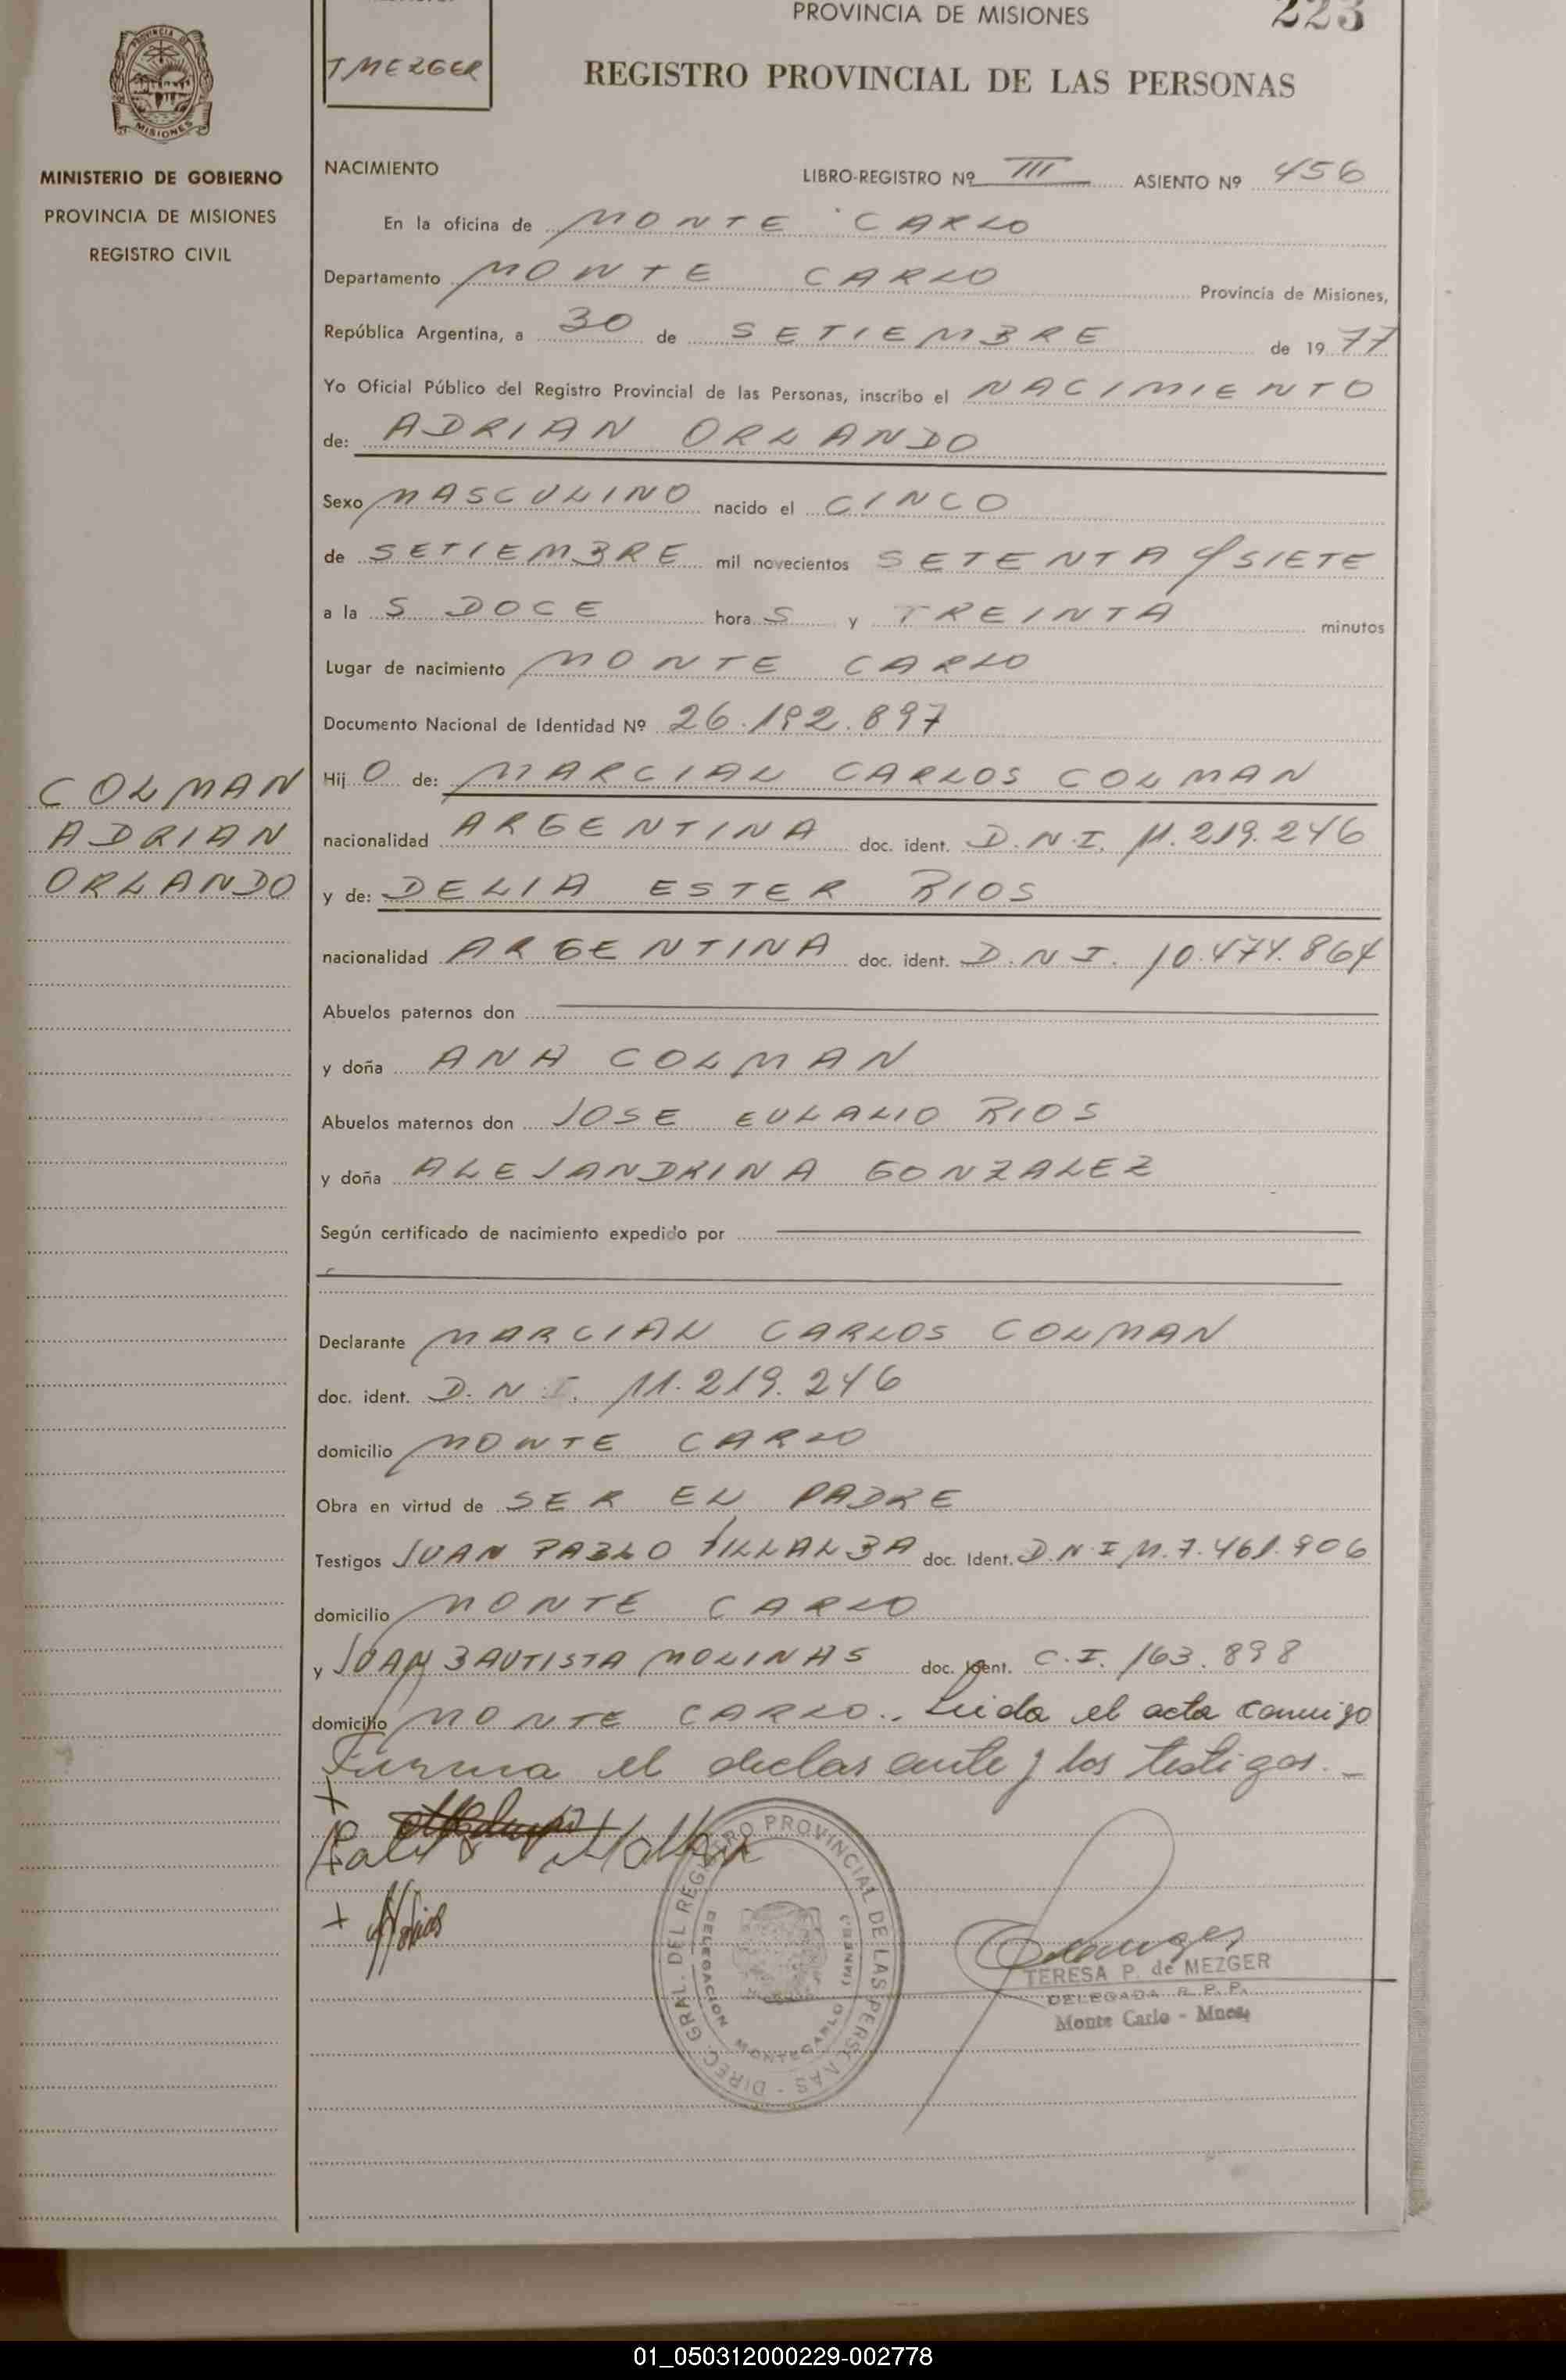 PROVINCIA DE MISIONES
223
T MEZGER
REGISTRO PROVINCIAL DE LAS PERSONAS
MISIONES
MINISTERIO DE GOBIERNO
PROVINCIA DE MISIONES
REGISTRO CIVIL
NACIMIENTO
LIBRO-REGISTRO Nº III ASIENTO Nº 456
En la oficina de MONTE CARLO
Departamento MONTE CARLO Provincia de Misiones,
República Argentina, a 30 de SETIEMBRE de 1977
Yo Oficial Público del Registro Provincial de las Personas, inscribo el NACIMIENTO
de: ADRIAN ORLANDO
Sexo MASCULINO nacido el CINCO
de SETIEMBRE mil novecientos SETENTA Y SIETE
a la S DOCE hora S y TREINTA minutos
Lugar de nacimiento MONTE CARLO
Documento Nacional de Identidad Nº 26.192.897
COLMAN
ADRIAN
ORLANDO
Hij O de: MARCIAL CARLOS COLMAN
nacionalidad ARGENTINA doc. ident. D.N.I. 11.219.246
y de: DELIA ESTER RIOS
nacionalidad ARGENTINA doc. ident. D.N.I. 10.474.864
Abuelos paternos don
y doña ANA COLMAN
Abuelos maternos don JOSE EULALIO RIOS
y doña ALEJANDRINA GONZALEZ
Según certificado de nacimiento expedido por
Declarante MARCIAL CARLOS COLMAN
doc. ident. D.N.I. 11.219.246
domicilio MONTE CARLO
Obra en virtud de SER EL PADRE
Testigos JUAN PABLO VILLALBA doc. Ident. D.N.I M.7.461.906
domicilio MONTE CARLO
y JUAN BAUTISTA MOLINAS doc. Ident. C.I. 163.898
domicilio MONTE CARLO.. Leida el acta conmigo
Firma el declarante y los testigos.-
DIREC. GRAL. DEL REGISTRO PROVINCIAL DE LAS PERSONAS
DELEGACION MONTECARLO
TERESA P. de MEZGER
DELEGADA R. P. P.
Monte Carlo - Mnes.
01_050312000229-002778